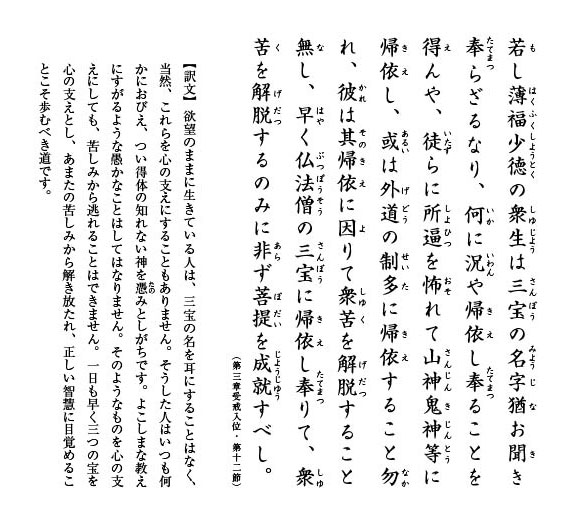 若し薄福少徳の衆生は三宝の名字猶お聞き
奉らざるなり、何に況や帰依し奉ることを
得んや、徒らに所逼を怖れて山神鬼神等に
帰依し、或は外道の制多に帰依すること勿
れ、彼は其帰依に因りて衆苦を解脱すること
無し、早く仏法僧の三宝に帰依し奉りて、衆
苦を解脱するのみに非ず菩提を成就すべし。
（第三章受戒入位・第十二節）
【訳文】欲望のままに生きている人は、三宝の名を耳にすることはなく、
当然、これらを心の支えにすることもありません。そうした人はいつも何
かにおびえ、つい得体の知れない神を憑みとしがちです。よこしまな教え
にすがるような愚かなことはしてはなりません。そのようなものを心の支
えにしても、苦しみから逃れることはできません。一日も早く三つの宝を
心の支えとし、あまたの苦しみから解き放たれ、正しい智慧に目覚めるこ
とこそ歩むべき道です。